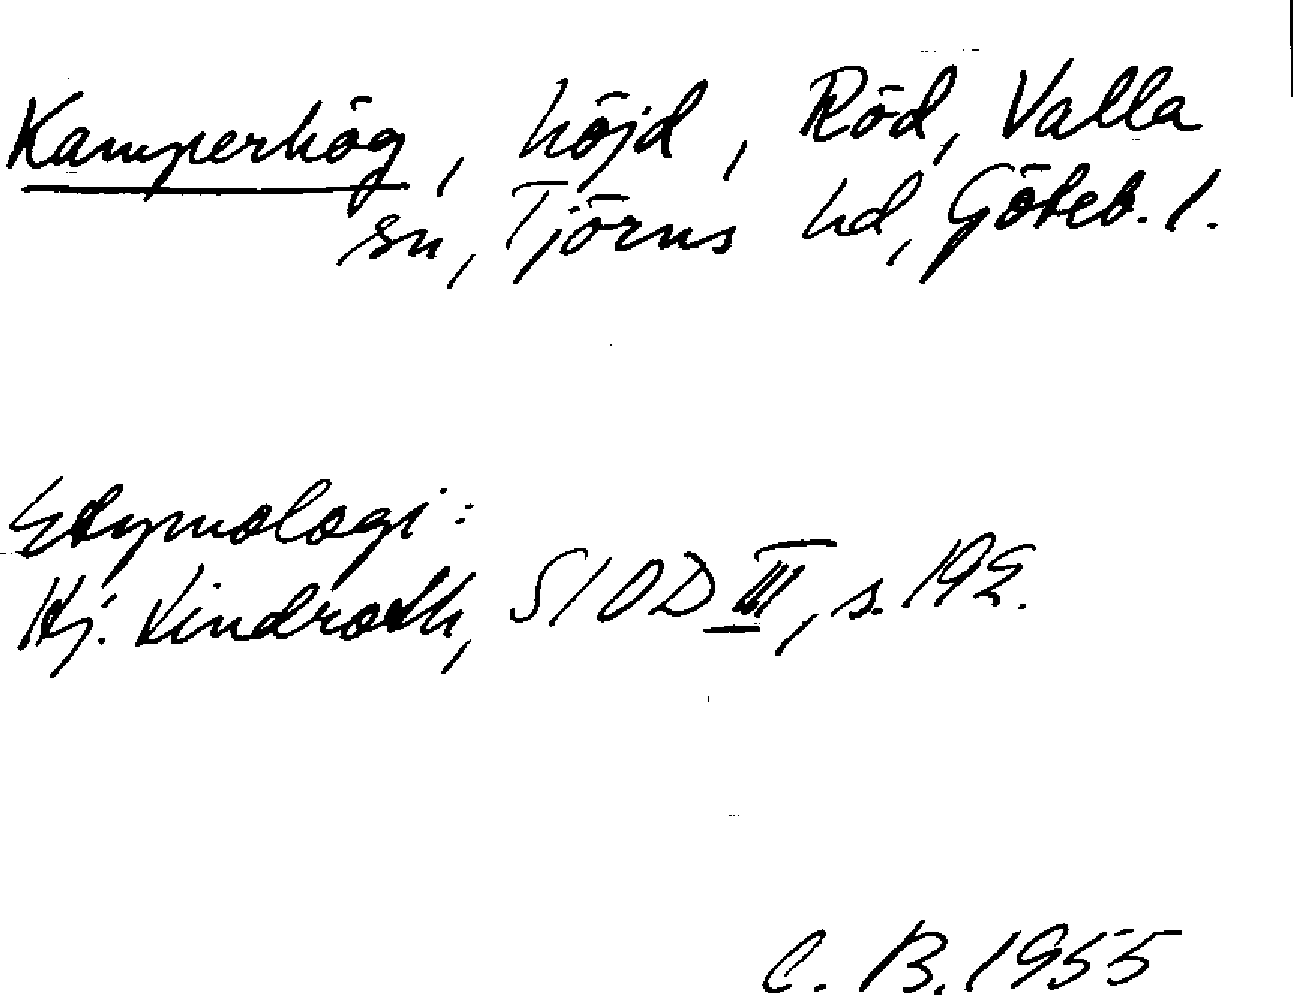 Kamperhög, höjd, Röd, Valla
sn, Tjörns hd, Göteb. l.
Etymologi:
Hj. Lindroth, SIOD III, s. 192.
C. B. 1955